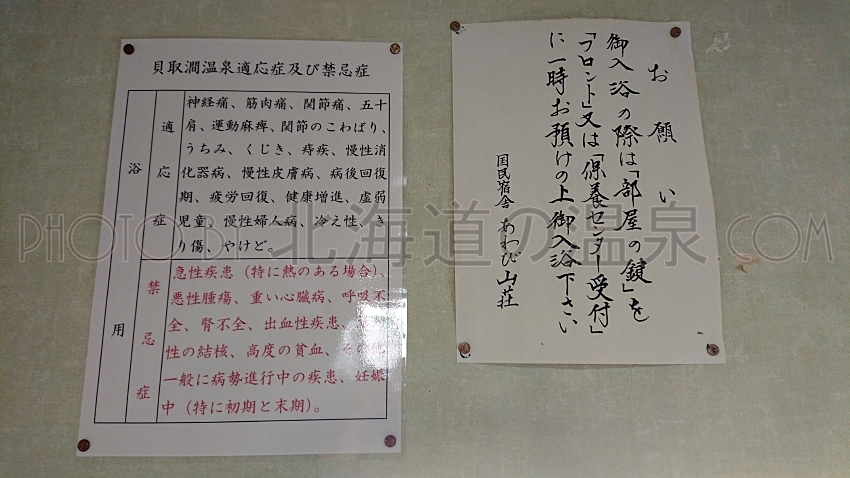 貝取澗温泉適応症及び禁忌症
浴用
適応症
神経痛、筋肉痛、関節痛、五十
肩、運動麻痺、関節のこわばり、
うちみ、くじき、痔疾、慢性消
化器病、慢性皮膚病、病後回復
期、疲労回復、健康増進、虚弱
児童、慢性婦人病、冷え性、き
り傷、やけど。
禁忌症
急性疾患（特に熱のある場合）、
悪性腫瘍、重い心臓病、呼吸不
全、腎不全、出血性疾患、
性の結核、高度の貧血、その他
一般に病勢進行中の疾患、妊娠
中（特に初期と末期）。
お願い
御入浴の際は「部屋の鍵」を
「フロント」又は「保養センター受付」
に一時お預けの上御入浴下さい
国民宿舎 あわび山荘
PHOTO BY 北海道の温泉.COM